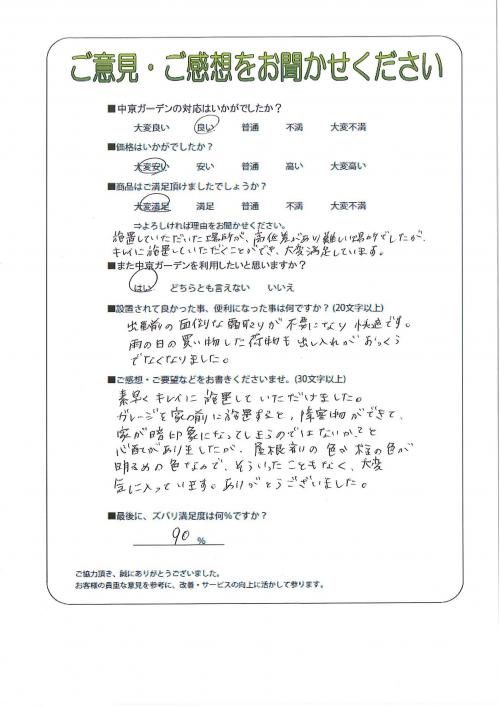 ご意見・ご感想をお聞かせください
■中京ガーデンの対応はいかがでしたか？
大変良い 良い 普通 不満 大変不満
■価格はいかがでしたか？
大変安い 安い 普通 高い 大変高い
■商品はご満足頂けましたでしょうか？
大変満足 満足 普通 不満 大変不満
⇒よろしければ理由をお聞かせください。
設置していただいた場所が、高低差があり難しい場所でしたが、
キレイに設置していただくことができ、大変満足しています。
■また中京ガーデンを利用したいと思いますか？
はい どちらとも言えない いいえ
■設置されて良かった事、便利になった事は何ですか？(20文字以上)
出勤前の面倒な霜取りが不要になり快適です。
雨の日の買い物した荷物も出し入れがおっくう
でなくなりました。
■ご感想・ご要望などをお書きくださいませ。(30文字以上)
素早くキレイに設置していただけました。
ガレージを家の前に設置すると、障害物ができて、
家が暗印象になってしまうのではないか？と
心配がありましたが、屋根有りの色が柱の色が
明るめの色なので、そういったこともなく、大変
気に入っています。ありがとうございました。
■最後に、ズバリ満足度は何％ですか？
90 ％
ご協力頂き、誠にありがとうございました。
お客様の貴重な意見を参考に、改善・サービスの向上に活かして参ります。